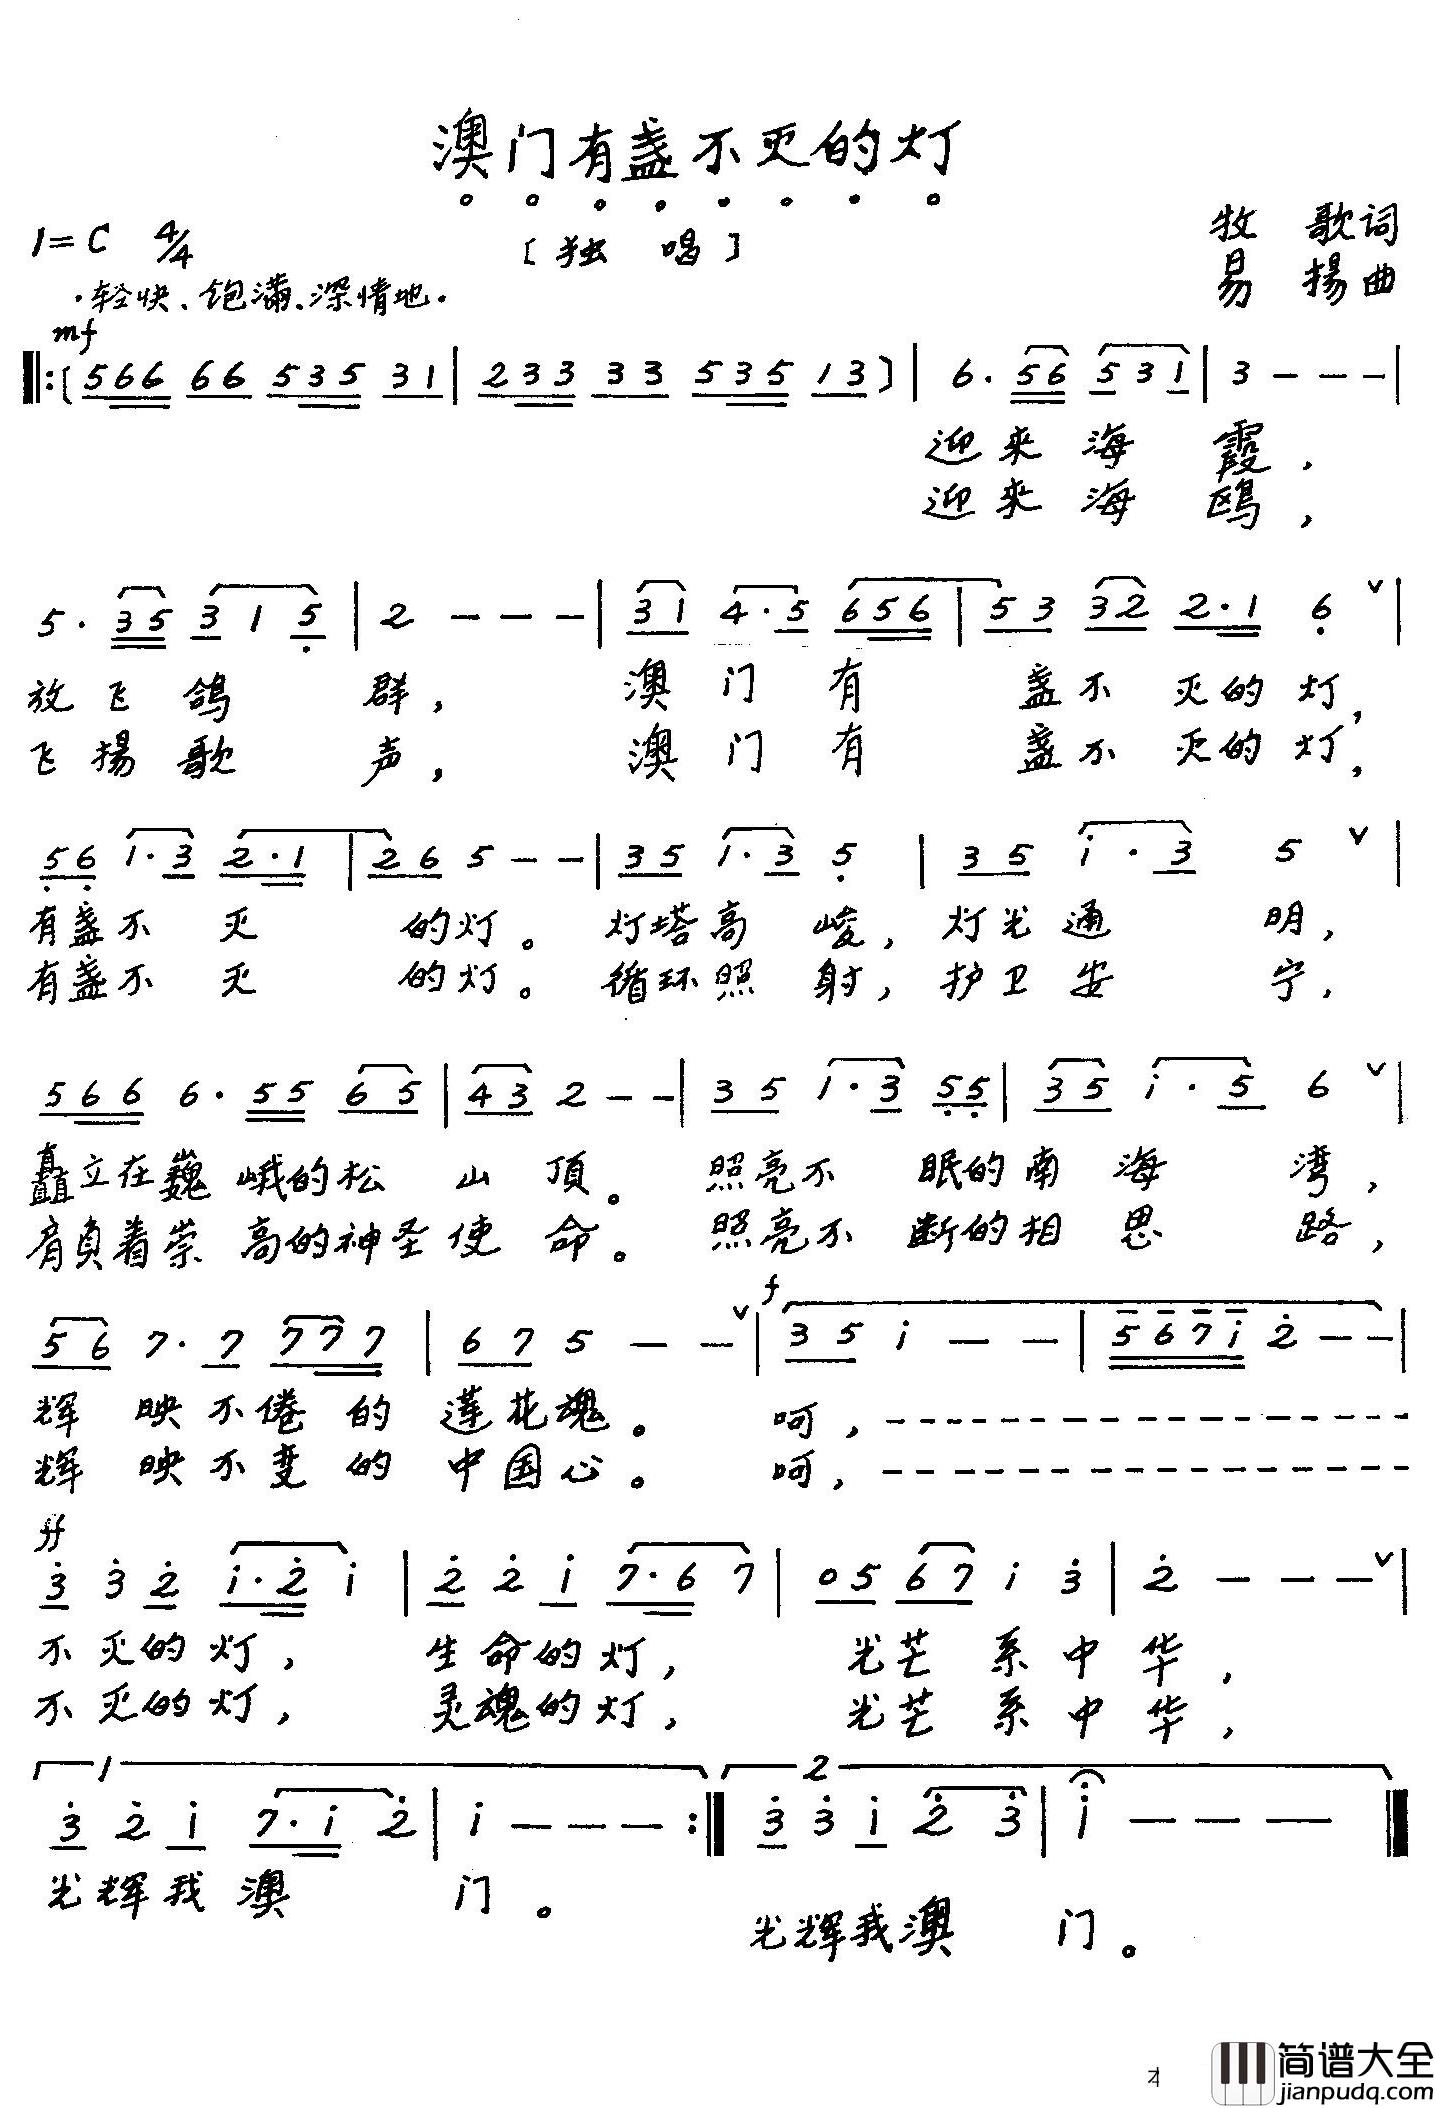 澳门有盏不灭的灯
1=C 4/4 [独 唱] 牧 歌词
·轻快、饱满、深情地· 易 揚曲
mf
‖:(566 66 535 31 | 233 33 535 13) | 6· 56 531 | 3 - - - |
迎来海霞,
迎来海鸥,
5· 35 315 | 2 - - - | 31 4·5 656 | 53 32 2·1 6 ∨ |
放飞鸽群, 澳门有盏不灭的灯,
飞揚歌声, 澳门有盏不灭的灯,
56 1·3 2·1 | 26 5 - - | 35 1·3 5 | 35 i·3 5 ∨ |
有盏不灭的灯。灯塔高峻,灯光通明,
有盏不灭的灯。循环照射,护卫安宁,
566 6·55 65 | 43 2 - - | 35 1·3 55 | 35 i·5 6 ∨ |
矗立在巍峨的松山顶。照亮不眠的南海湾,
肩负着崇高的神圣使命。照亮不断的相思路,
56 7·7 777 | 67 5 - - ∨ | f 35 i - - | 567i 2 - - |
辉映不倦的莲花魂。呵,------------
辉映不变的中国心。呵,------------
ff
3 3 2 i·2 i | 2 2 i 7·6 7 | 05 67 i 3 | 2 - - - ∨ |
不灭的灯, 生命的灯, 光芒系中华,
不灭的灯, 灵魂的灯, 光芒系中华,
1 2
3 2 i 7·i 2 | i - - - :‖ 3 3 i 2 3 | i - - - ‖
光辉我澳门。
光辉我澳门。
简谱大全
jianpudq.com